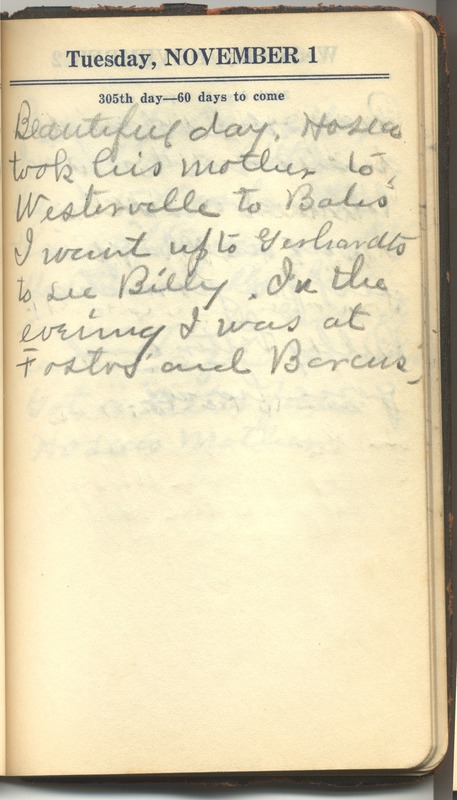 Tuesday, NOVEMBER 1
305th day—60 days to come
Beautiful day. Hosea
took his mother to
Westerville to Bales
I went up to Gerhardts
to see Billy. In the
evening I was at
Fosters and Barcus.